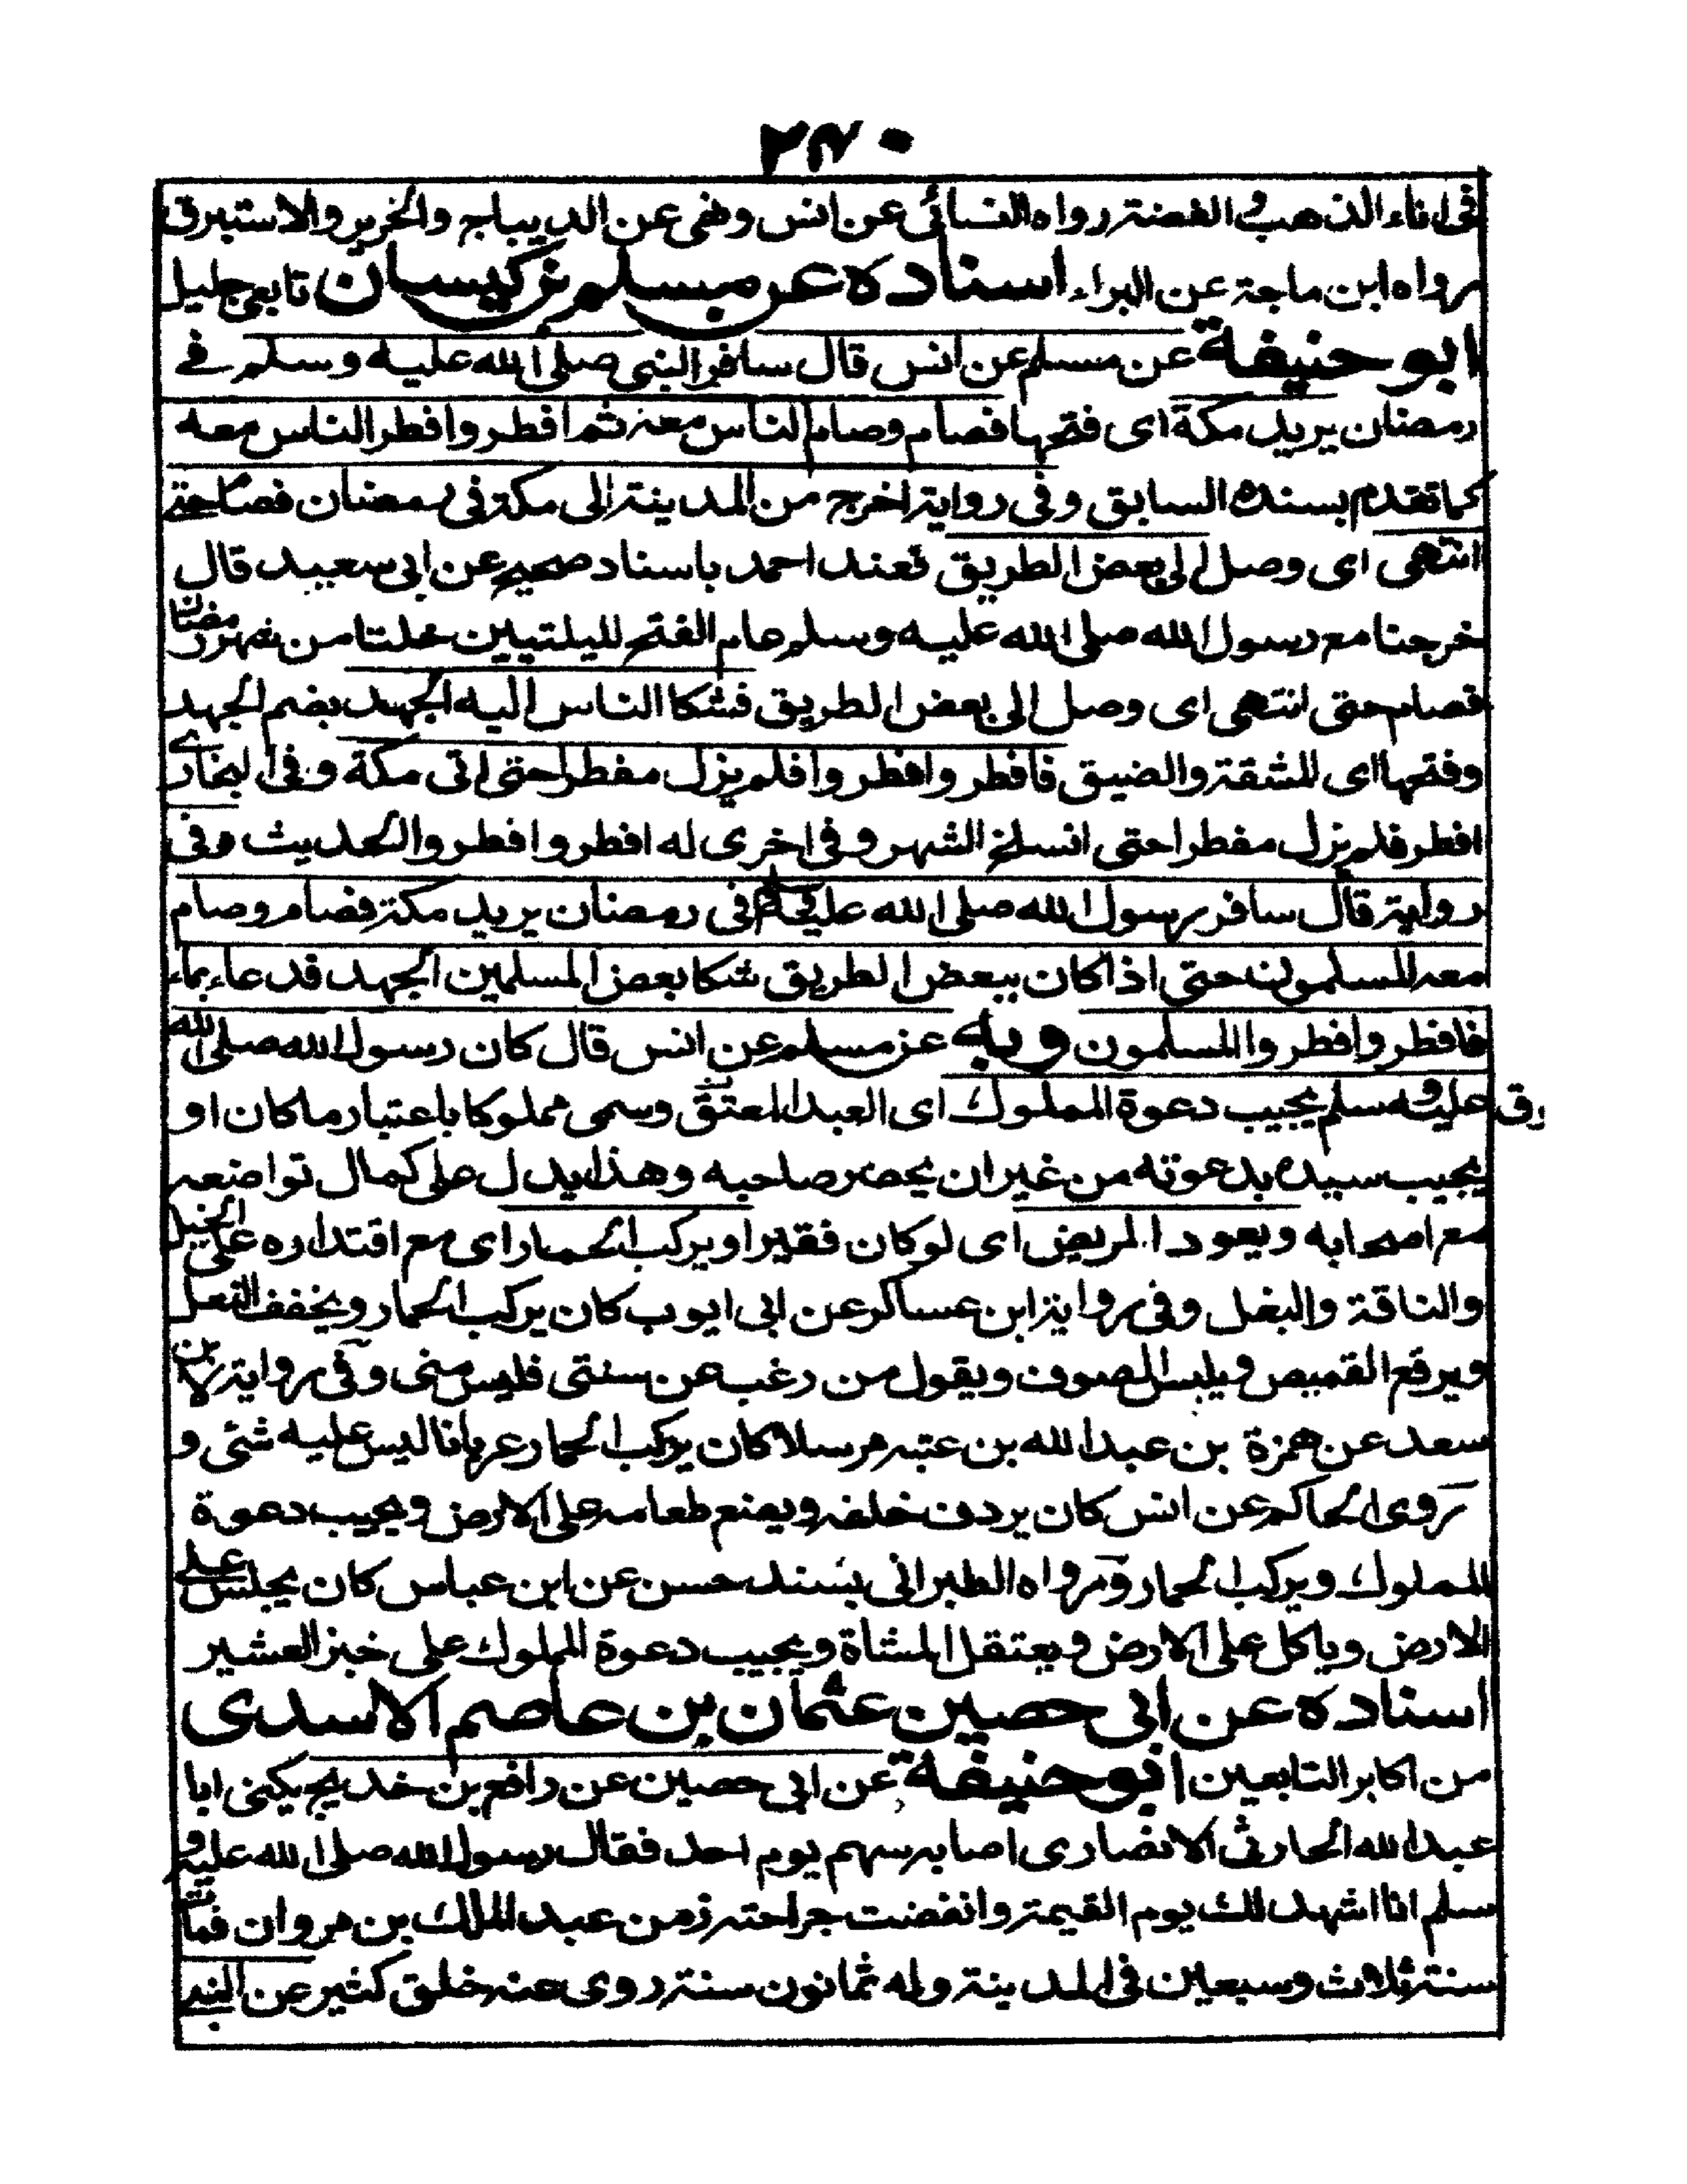 ۲۷۰
فى اناء الذهب و الفضة رواه النسائى عن انس ونهى عن الديباج والحرير والاستبرق
رواه ابن ماجة عن البراء اسناده عن مسلم بن كيسان تابعى جليل
ابو حنيفة عن مسلم عن انس قال سافر النبى صلى الله عليه وسلم فے
رمضان يريد مكة اى فتحها فصام وصام الناس معه ثم افطر وافطر الناس معه
كما تقدم بسنده السابق وفى رواية اخرج من المدينة الى مكة فى رمضان فصام حتے
انتهى اى وصل الى بعض الطريق فعند احمد باسناد صحيح عن ابى سعيد قال
خرجنا مع رسول الله صلى الله عليه وسلم عام الفتح لليلتين خلتا من شهر رمضان
فصام حتى انتهى اى وصل الى بعض الطريق فشكا الناس اليه الجهد بضم الجهد
وفتحها اى المشقة والضيق فافطر وافطروا فلم يزل مفطرا حتى اتى مكة وفى البخارے
افطر فلم يزل مفطرا حتى انسلخ الشهر وفى اخرى له افطر وافطروا الحديث وفى
رواية قال سافر رسول الله صلى الله عليه وسلم فى رمضان يريد مكة فصام وصام
معه المسلمون حتى اذا كان ببعض الطريق شكا بعض المسلمين الجهد فدعا بماء
فافطر وافطر والمسلمون وبه عن مسلم عن انس قال كان رسول الله صلى الله
عليه وسلم يجيب دعوة المملوك اى العبد المعتق وسمى مملوكا باعتبار ما كان او
يجيب سيده بدعوته من غير ان يحضر صاحبه وهذا يدل على كمال تواضعه
مع اصحابه ويعود المريض اى لو كان فقيرا ويركب الحمار اى مع اقتداره على الخيل
والناقة والبغل وفى رواية ابن عساكر عن ابى ايوب كان يركب الحمار ويخفف النعل
ويرقع القميص ويلبس الصوف ويقول من رغب عن سنتى فليس منى وفى رواية لابن
سعد عن حمزة بن عبد الله بن عتبه مرسلا كان يركب الحمار عريانا ليس عليه شئى و
روى الحاكم عن انس كان يردف خلفه ويضع طعامه على الارض ويجيب دعوة
المملوك ويركب الحمار ورواه الطبرانى بسند حسن عن ابن عباس كان يجلس علے
الارض وياكل على الارض ويعتقل المشاة ويجيب دعوة المملوك على خبز العشير
اسناده عن ابى حصين عثمان بن عاصم الاسدى
من اكابر التابعين ابو حنيفة عن ابى حصين عن رافع بن خديج يكنى ابا
عبد الله الحارثى الانصارى اصابه سهم يوم احد فقال رسول الله صلى الله عليه و
سلم انا اشهد لك يوم القيمة وانفضت جراحته زمن عبد الملك بن مروان فمات
سنة ثلاث وسبعين فى المدينة وله ثمانون سنة روى عنه خلق كثير عن النبے